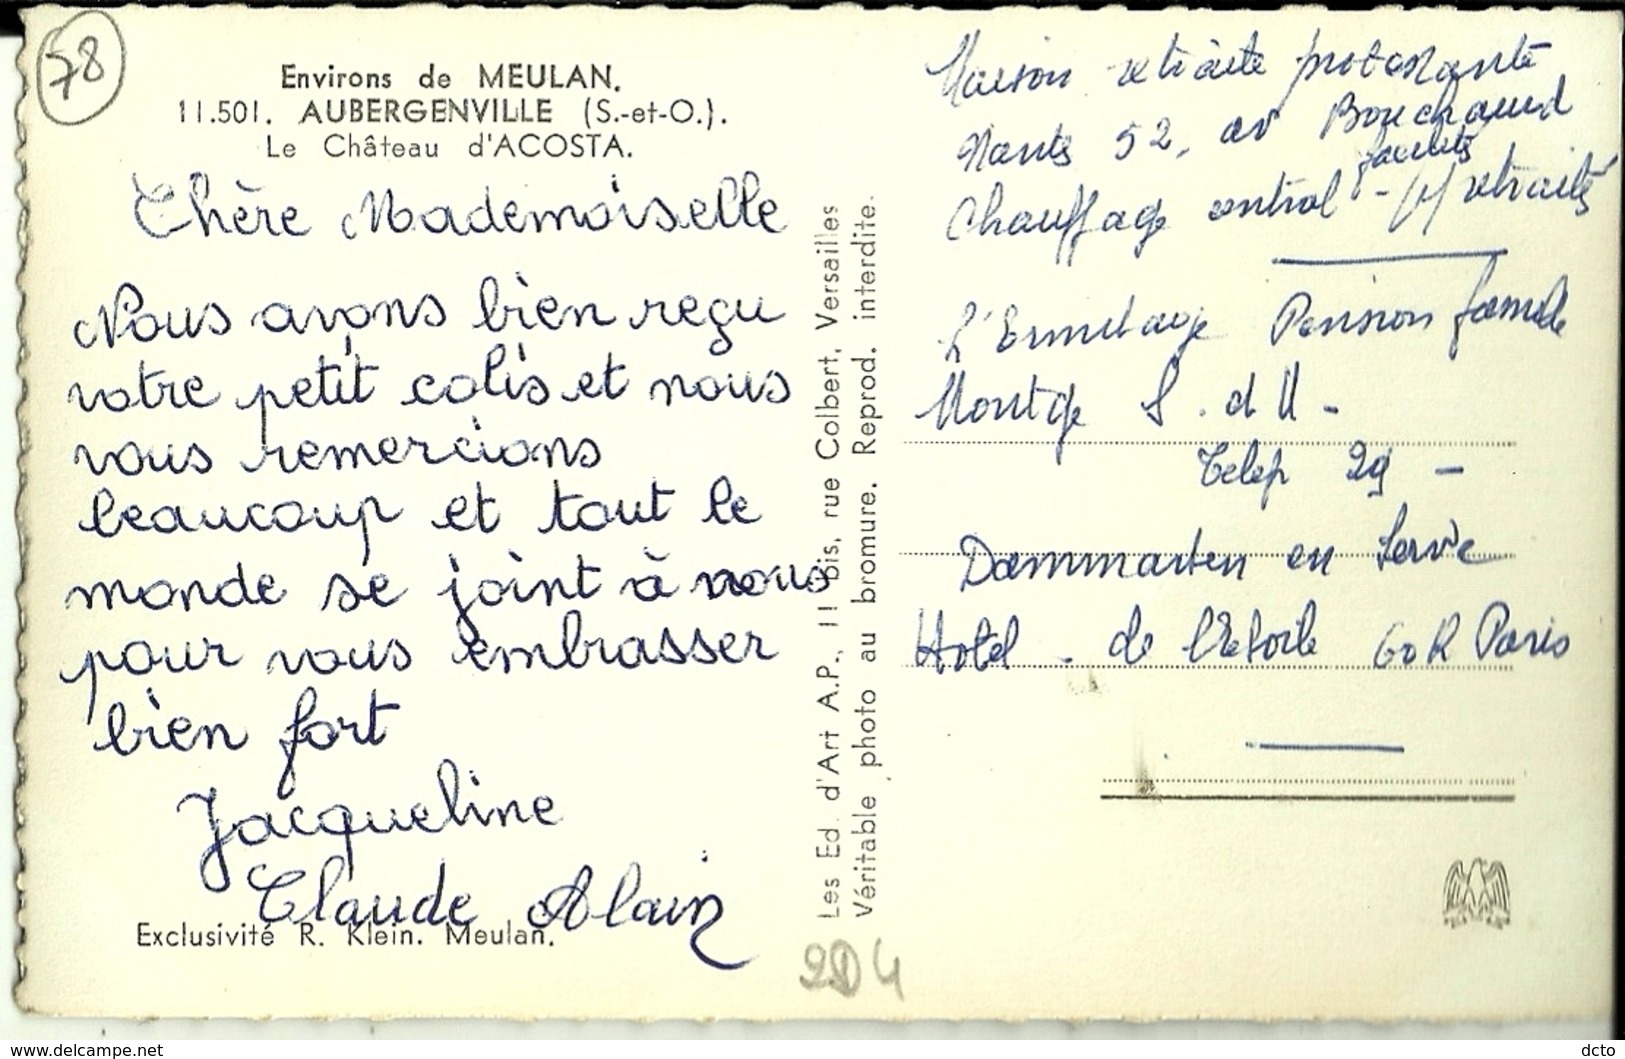 78
Environs de MEULAN.
11.501. AUBERGENVILLE (S.-et-O.).
Le Château d'ACOSTA.
Chère Mademoiselle
Nous avons bien reçu
votre petit colis et nous
vous remercions
beaucoup et tout le
monde se joint à nous
pour vous embrasser
bien fort
Jacqueline
Claude Alain
Exclusivité R. Klein. Meulan.
Les Ed. d'Art A.P., 11 bis, rue Colbert, Versailles
Véritable photo au bromure. Reprod. interdite.
Maison retraite protestante
Nants 52, av Bouchaud
Chauffage central - retraité
L'Ermitage Pension famile
S. d M -
Telep 29 -
Dammarten en Serve
Hotel - de l'Etoile 60 R Paris
2D4
www.delcampe.net
dcto